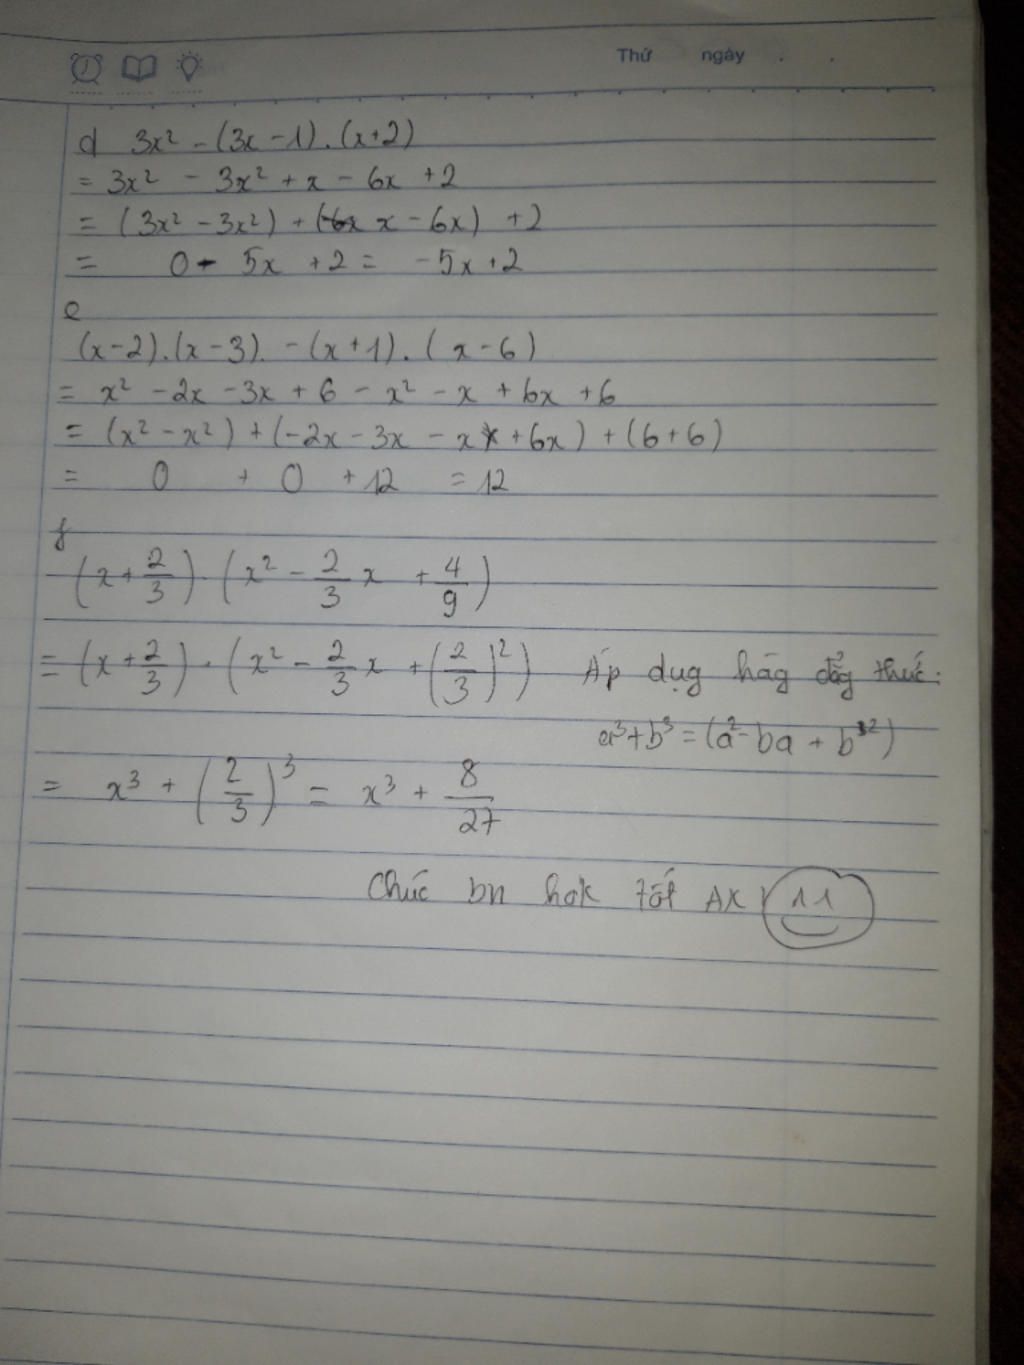 Thứ ngày . .
d 3x² - (3x - 1).(x+2)
= 3x² - 3x² + x - 6x + 2
= (3x² - 3x²) + (x - 6x) + 2
= 0 - 5x + 2 = -5x + 2
e
(x-2).(x-3). -(x+1).(x-6)
= x² - 2x - 3x + 6 - x² - x + 6x + 6
= (x² - x²) + (-2x - 3x - x + 6x) + (6+6)
= 0 + 0 + 12 = 12
f
(x + 2/3) . (x² - 2/3 x + 4/9)
= (x + 2/3) . (x² - 2/3 x + (2/3)²) Áp dụg hág đẳg thức:
a³+b³ = (a² - ba + b²)
= x³ + (2/3)³ = x³ + 8/27
Chúc bn hok tốt Ak